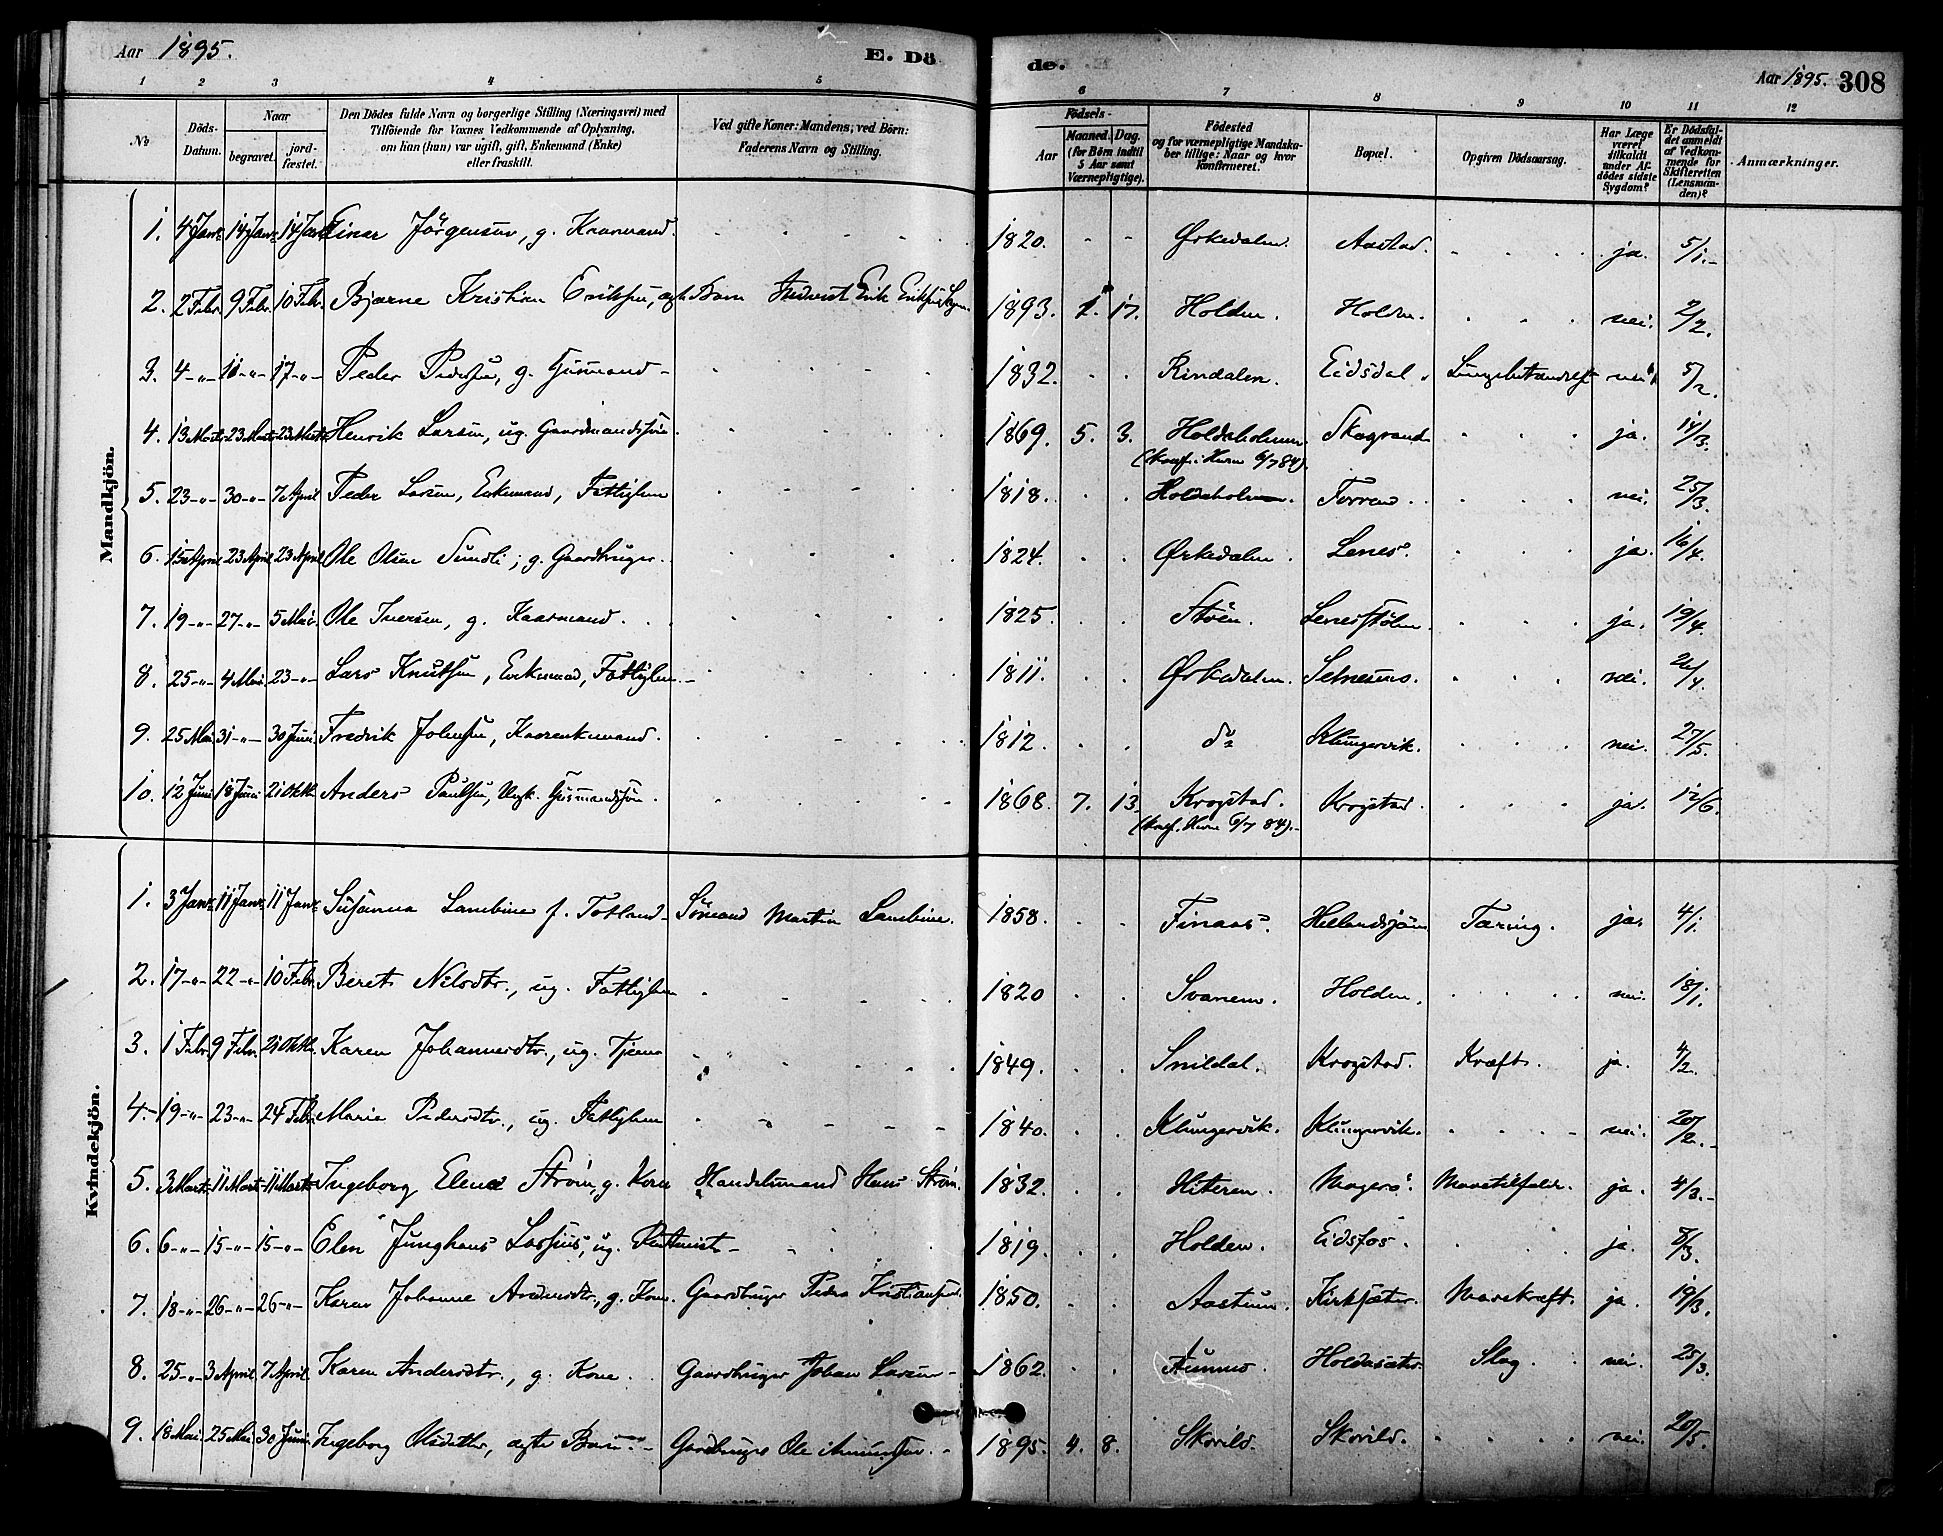 Aar 1895. E. Dö de. Aar 1895. 308
1 2 3 4 5 6 7 8 9 10 11 12
No. Döds-Datum. Naar begravet. jord-fæstet. Den Dödes fulde Navn og borgerlige Stilling (Næringsvei) med Tilföiende for Voxnes Vedkommende af Oplysning, om han (hun) var ugift, gift, Enkemand (Enke) eller fraskilt. Ved gifte Koner: Mandens, ved Börn: Faderens Navn og Stilling. Födsels- Aar Maaned. Dag. (for Börn indtil 5 Aar samt Værnepligtige). Födested og for værnepligtige Mandskaber tillige: Naar og hvor konfirmeret. Bopæl. Opgiven Dödsaarsag. Har Læge været tilkaldt under Afdödes sidste Sygdom? Er Dödsfaldet anmeldt af Vedkommende for Skifteretten (Lensmanden)? Anmærkninger.
Mandkjön.
1. 4 Janr. 14 Janr. 14 Janr. Einar Jörgensen, g. Kaarmand. 1820. Ørkedalen. Aastad. ja. 5/1.
2. 2 Febr. 9 Febr. 10 Febr. Bjarne Kristian Eriksen, ægte Barn Erik Eriksen 1893. 1. 17. Holden. Holden. nei. 2/2.
3. 4 -"- 11 -"- 17 -"- Peder Pedersen, g. Husmand 1832. Rindalen. Eidsdal. Lungebetændelse nei 5/2.
4. 13 Marts 23 Marts 23 Marts Henrik Larsen, ug. Gaardmandssøn 1869. 5. 3. Holdaholmen (Konf. i Hevne 6/7 84). Skogrand ja. 14/3.
5. 23 -"- 30 -"- 7 April Peder Larsen, Enkemand, Fattiglem 1818. Holdaholmen. Torren. nei. 25/3.
6. 15 April 23 April 23 April Ole Olsen Sundli, g. Gaardbruger. 1824. Ørkedalen. Lenes. ja. 16/4.
7. 19 -"- 27 -"- 5 Mai. Ole Iversen, g. Kaarmand. 1825. Støen. Lenesstølen. ja. 19/4.
8. 25 -"- 4 Mai. 23 -"- Lars Knutsen, Enkemand, Fattiglem. 1811. Ørkedalen. Selnesmo. nei. 26/4.
9. 25 Mai 31 -"- 30 Juni. Fredrik Johnsen, Kaarenkemand. 1812. do Klungervik. nei. 27/5.
10. 12 Juni 18 Juni 21 Oktbr. Anders Paulsen, Ungk. Husmandssøn. 1868. 7. 13 Krogstad. (Konf. Hevne 6/7 84). Krogstad. ja. 12/6.
Kvindekjön.
1. 3 Janr. 11 Janr. 11 Janr. Susanna Lambine f. Totland Sømand Martin Lambine. 1858. Finaas. Hellandsjøen Tæring. ja. 4/1.
2. 17 -"- 22 -"- 10 Febr. Beret Nilsdtr., ug. Fattiglem 1820 Svanem. Holden. nei. 18/1.
3. 1 Febr. 9 Febr. 21 Oktbr. Karen Johannesdtr., ug. Tjener 1849. Snildal. Krogstad. Kræft. ja. 4/2.
4. 19 -"- 23 -"- 24 Febr. Marie Pedersdtr., ug. Fattiglem 1840. Klungervik. Klungervik. nei. 20/2.
5. 3 Marts 11 Marts 11 Marts Ingeborg Elena Strøm, g. Kone Handelsmand Hans Strøm. 1832. Hiteren. Magerø. Mavetilfælde. ja. 4/3.
6. 6 -"- 15 -"- 15 -"- Elen Junghans Lossius, ug. 1819. Holden. Eidsfos. ja. 8/3.
7. 18 -"- 26 -"- 26 -"- Karen Johanne Andersdtr., g. Kone. Gaardbruger Peder Kristiansen. 1850. Aastum. Kirksæter. Mavekræft. ja. 19/3.
8. 25 -"- 3 April 7 April. Karen Andersdtr., g. Kone. Gaardbruger Johan Larsen 1862. Holdasæter. Slag. nei. 25/3.
9. 18 Mai. 25 Mai 30 Juni Ingeborg Olsdatter, ægte Barn Gardbruger Ole Amundsen. 1895. 4. 8. Skorild. Skorild. nei. 20/5.